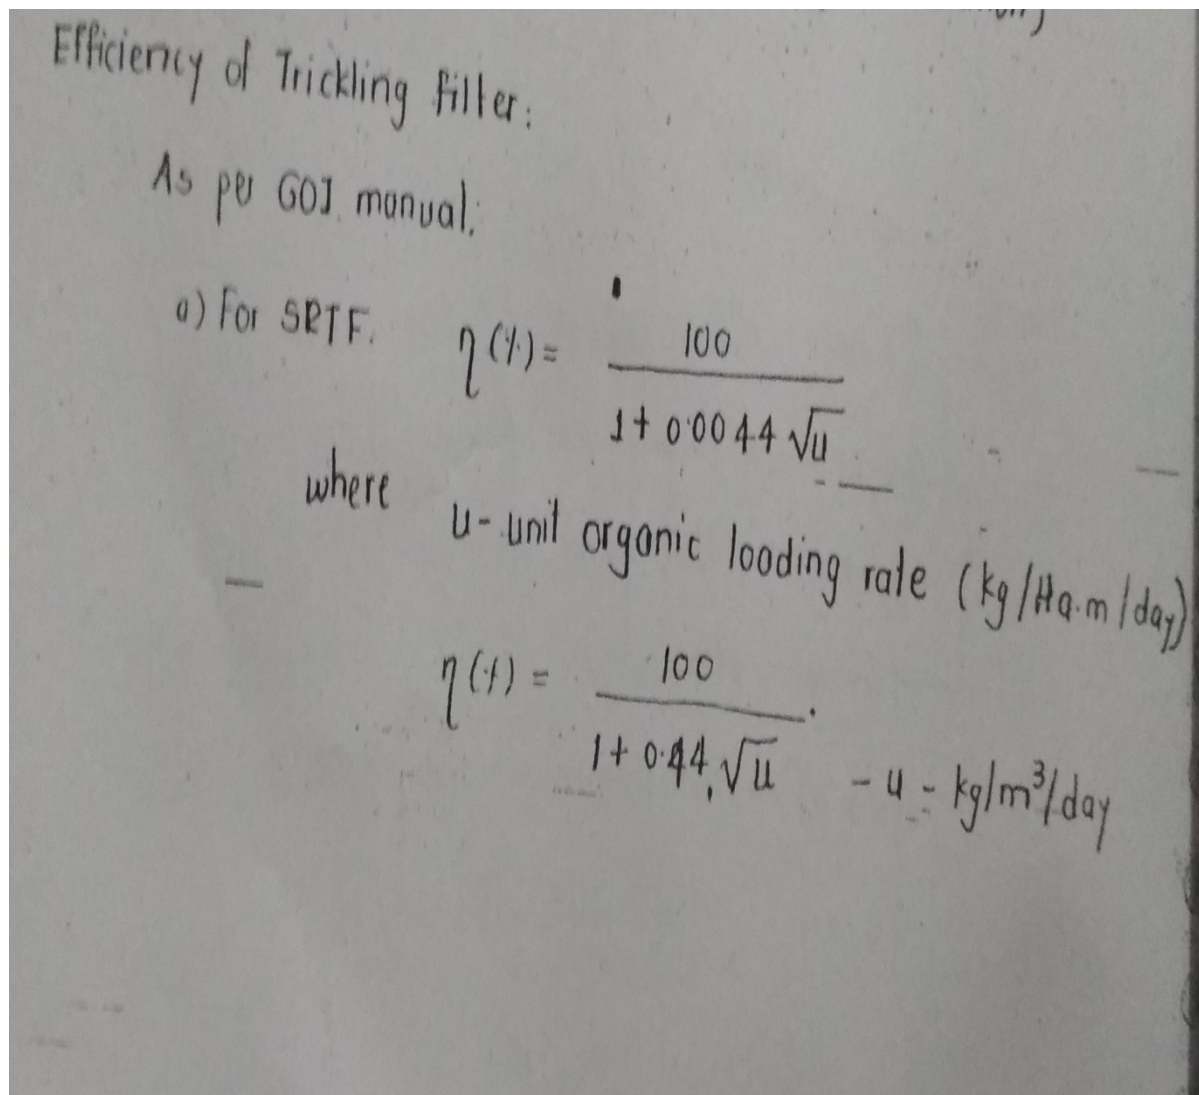 Efficiency of Trickling filter:
As per GOI manual:
a) For SRTF. η(%) = 100 / 1 + 0.0044 √u
where u - unit organic loading rate (kg/Ha.m/day)
η(%) = 100 / 1 + 0.44 √u - u - kg/m³/day